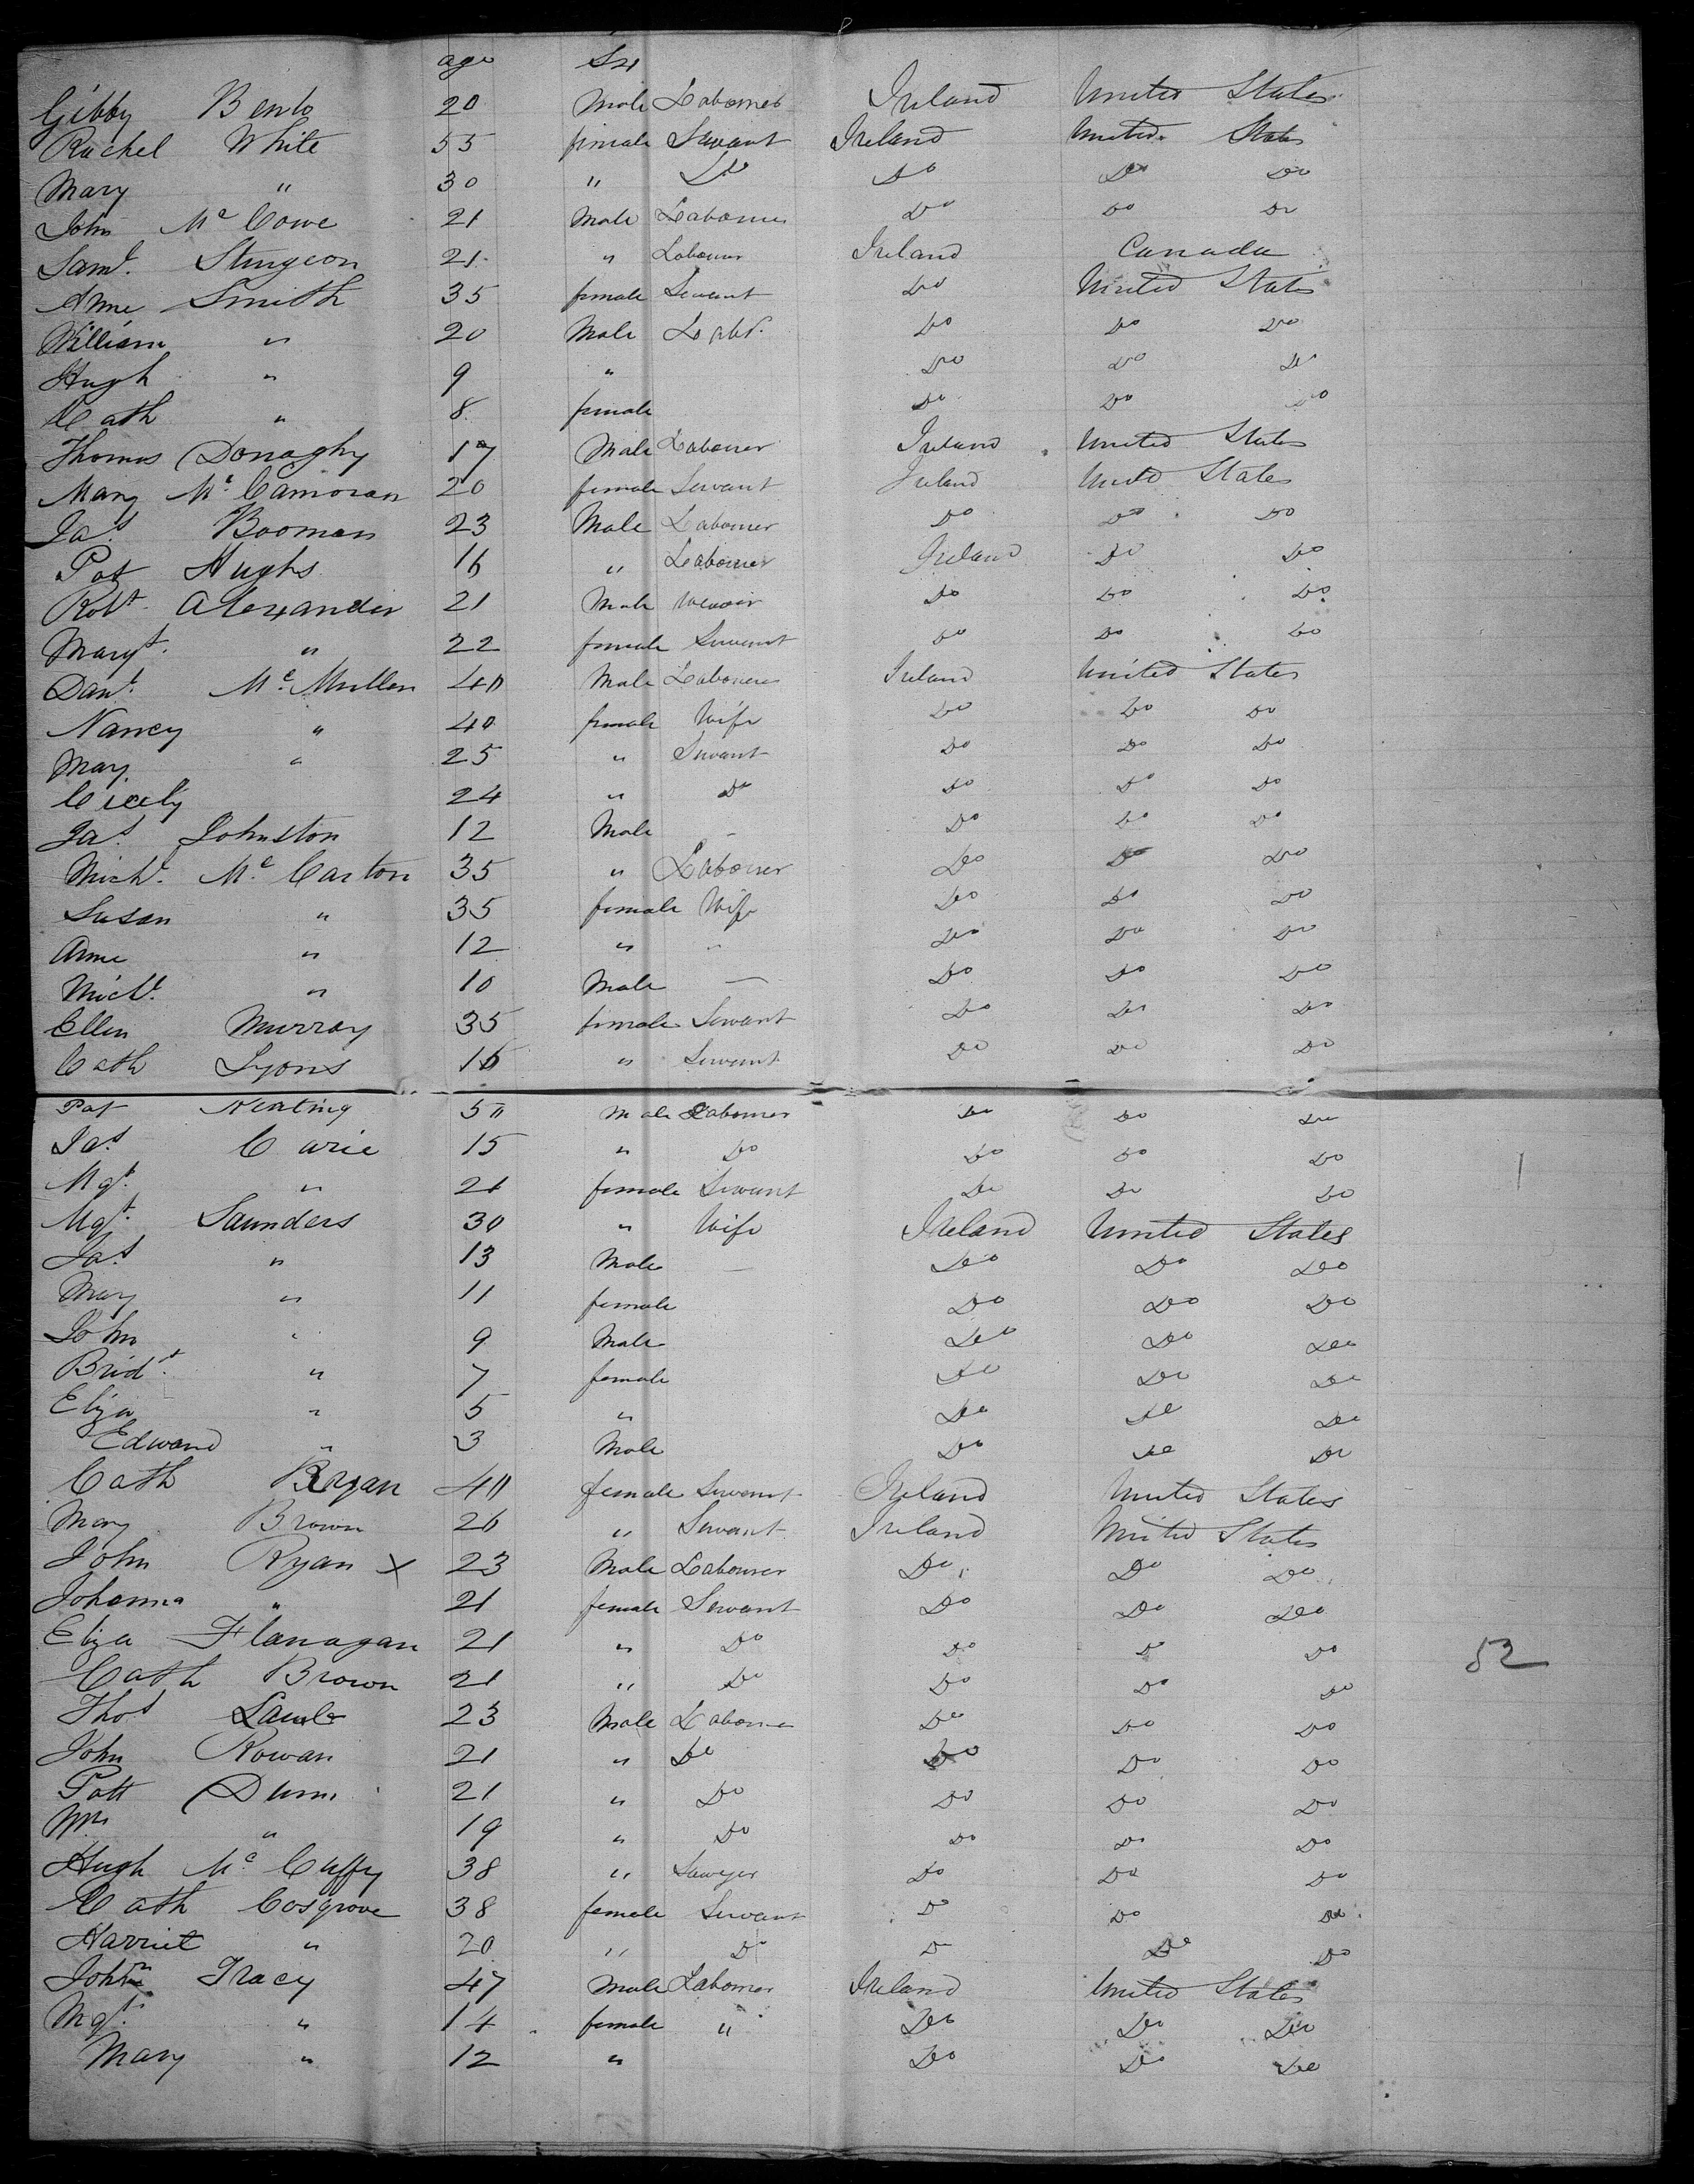 age Sex
Gibby Bento 20 Male Labourer Ireland United States
Rachel White 55 female Servant Ireland United States
Mary " 30 " Do Do Do Do
John Mc Cowe 21 Male Labourer Do Do Do
Saml. Sturgeon 21 " Labourer Ireland Canada
Anne Smith 35 female Servant Do United States
William " 20 Male Labr. Do Do Do
Hugh " 9 " Do Do Do
Cath " 8 female Do Do Do
Thomas Donaghy 17 Male Labourer Ireland United States
Mary Mc Camoran 20 female Servant Ireland Unitd States
Jas Booman 23 Male Labourer Do Do Do
Pat Hughs 16 " Labourer Ireland Do Do
Robt. Alexander 21 Male Weaver Do Do Do
Margt. " 22 female Servant Do Do Do
Danl. Mc Mullen 40 Male Labourer Ireland United States
Nancy " 40 female Wife Do Do Do
Mary " 25 " Servant Do Do Do
Cicely 24 " Do Do Do Do
Jas Johnston 12 Male - Do Do Do
Michl. Mc Carton 35 " Labourer Do Do Do
Susan " 35 female Wife Do Do Do
Anne " 12 " - Do Do Do
Michl. " 10 Male - Do Do Do
Ellen Murray 35 female Servant Do Do Do
Cath Lyons 16 " Servant Do Do Do
Pat Keating 50 Male Labourer Do Do Do
Jas Carie 15 " Do Do Do Do
Mgt. " 21 female Servant Do Do Do
Mgt. Saunders 30 " Wife Ireland United States
Jas " 13 Male - Do Do Do
Mary " 11 female Do Do Do
John " 9 Male Do Do Do
Bridt. " 7 female Do Do Do
Eliza " 5 " Do Do Do
Edward " 3 Male Do Do Do
Cath Ryan 40 female Servant Ireland United States
Mary Brown 26 " Servant Ireland United States
John Ryan x 23 Male Labourer Do Do Do
Johanna " 21 female Servant Do Do Do
Eliza Flanagan 21 " Do Do Do Do
52
Cath Brown 21 " Do Do Do Do
Thos Lawle 23 Male Labourer Do Do Do
John Rowan 21 " Do Do Do Do
Patt Dunn 21 " Do Do Do Do
Wm " 19 " Do Do Do Do
Hugh Mc Cuffy 38 " Sawyer Do Do Do
Cath Cosgrove 38 female Servant Do Do Do
Harriet " 20 " Do Do Do Do
John Tracy 47 Male Labourer Ireland United States
Mgt. " 14 female " Do Do Do
Mary " 12 " Do Do Do